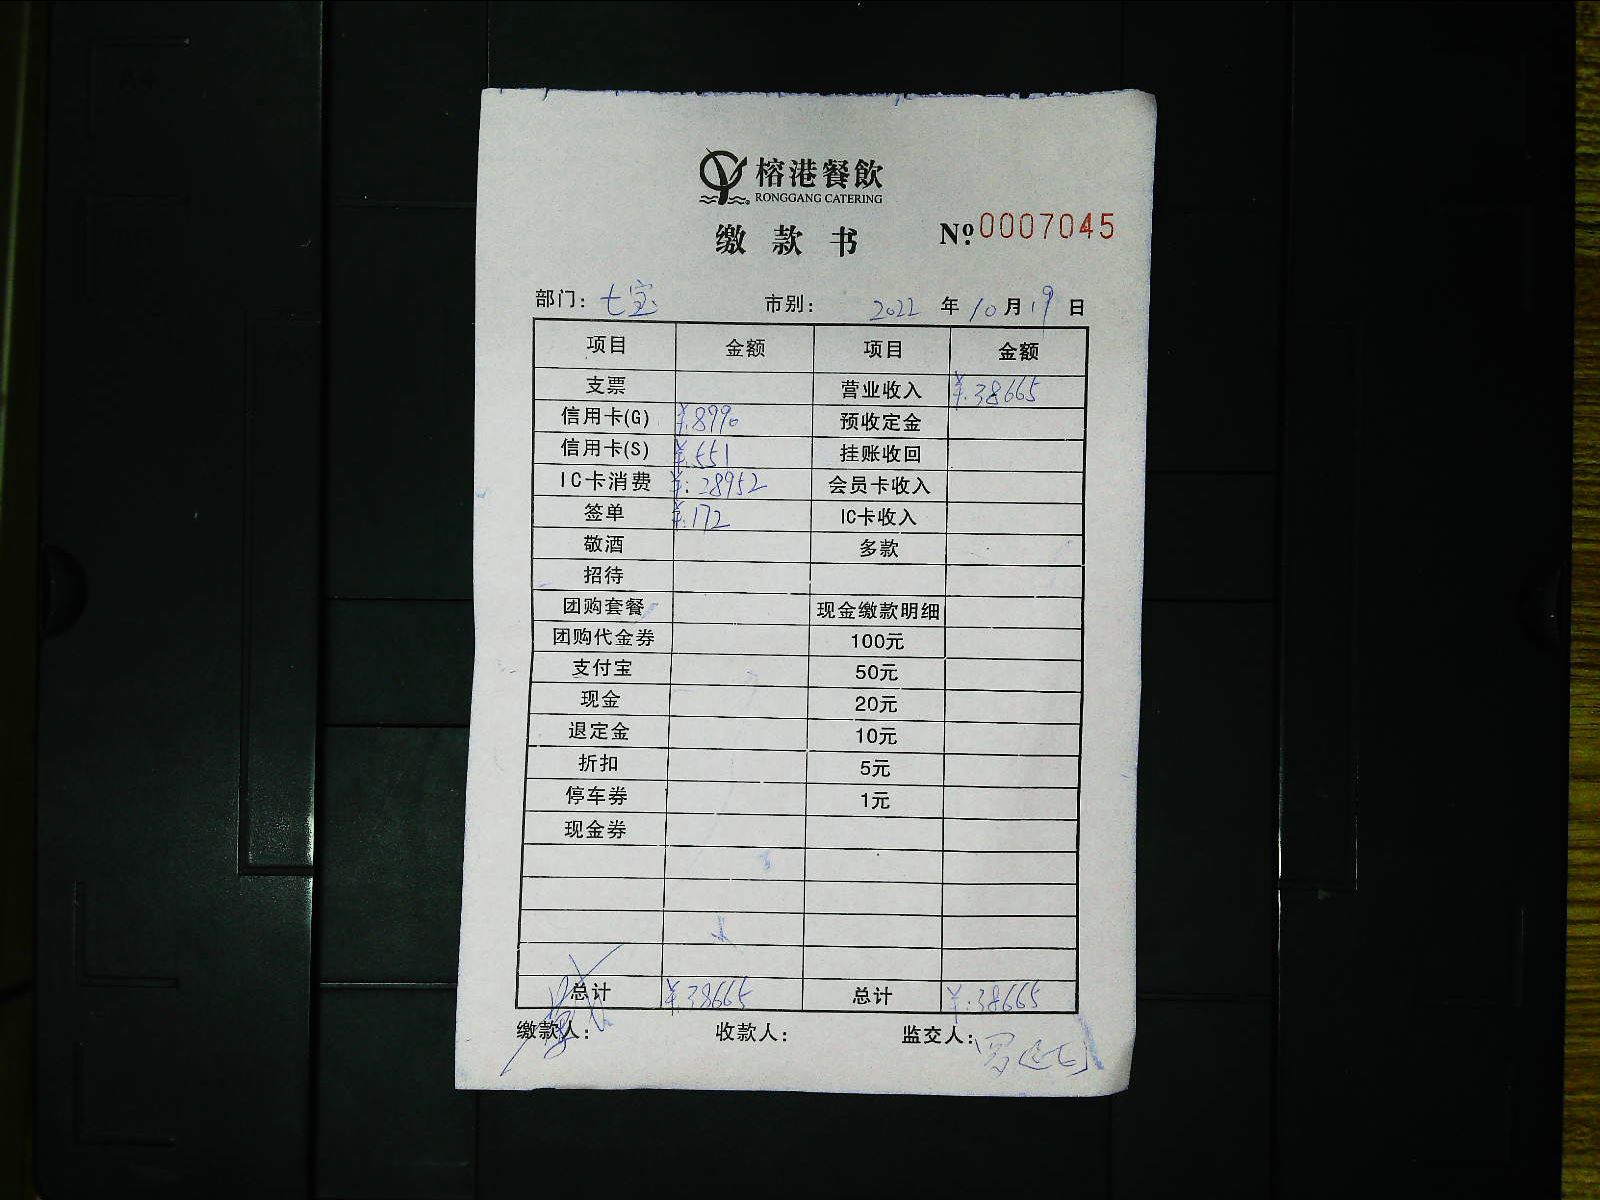 榕港餐飲
RONGGANG CATERING
缴款书 №0007045
部门：七宝 市别： 2022年10月19日
项目 金额 项目 金额
支票 营业收入 ¥:38665
信用卡(G) ¥:8990 预收定金
信用卡(S) ¥:551 挂账收回
IC卡消费 ¥:28952 会员卡收入
签单 ¥:172 IC卡收入
敬酒 多款
招待
团购套餐 现金缴款明细
团购代金券 100元
支付宝 50元
现金 20元
退定金 10元
折扣 5元
停车券 1元
现金券
总计 ¥:38665 总计 ¥:38665
缴款人： 收款人： 监交人：